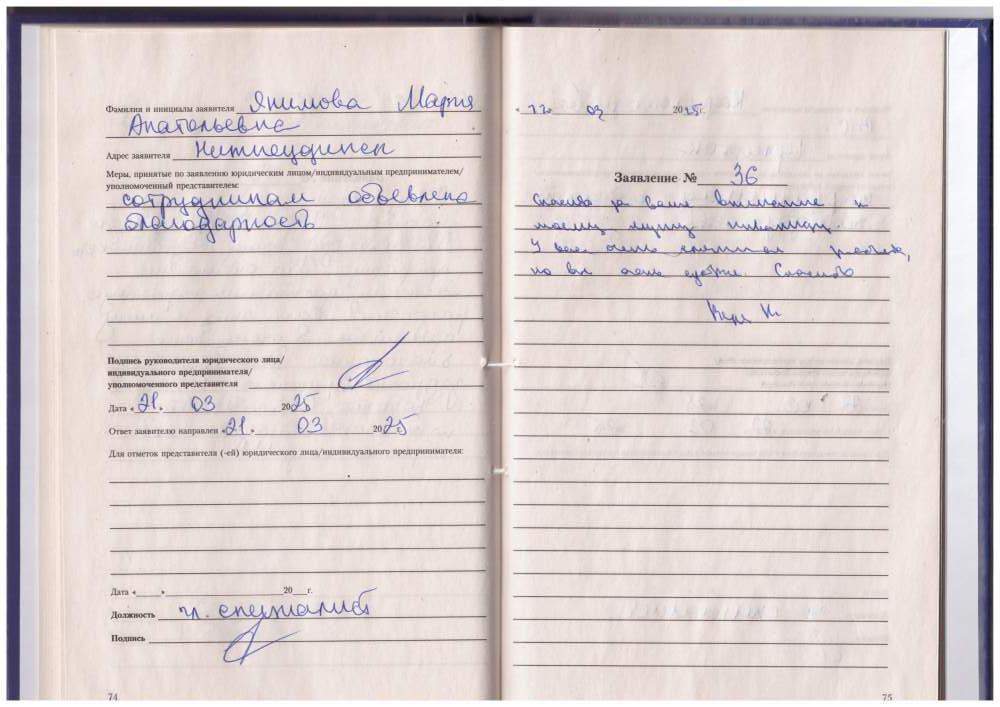 Фамилия и инициалы заявителя Якимова Мария
Анатольевна
Адрес заявителя Нижнеудинск
Меры, принятые по заявлению юридическим лицом/индивидуальным предпринимателем/
уполномоченный представителем:
сотрудникам объевлена
благодарность
Подпись руководителя юридического лица/
индивидуального предпринимателя/
уполномоченного представителя
Дата «21» 03 2025
Ответ заявителю направлен «21» 03 2025
Для отметок представителя (-ей) юридического лица/индивидуального предпринимателя:
Дата «____» ____ 20__г.
Должность гл. специалист
Подпись
74
« 12 03 2025г.
Заявление № 36
Спасибо за Ваше внимание к
моему мужу
У вас очень работа,
но вы очень Спасибо
75